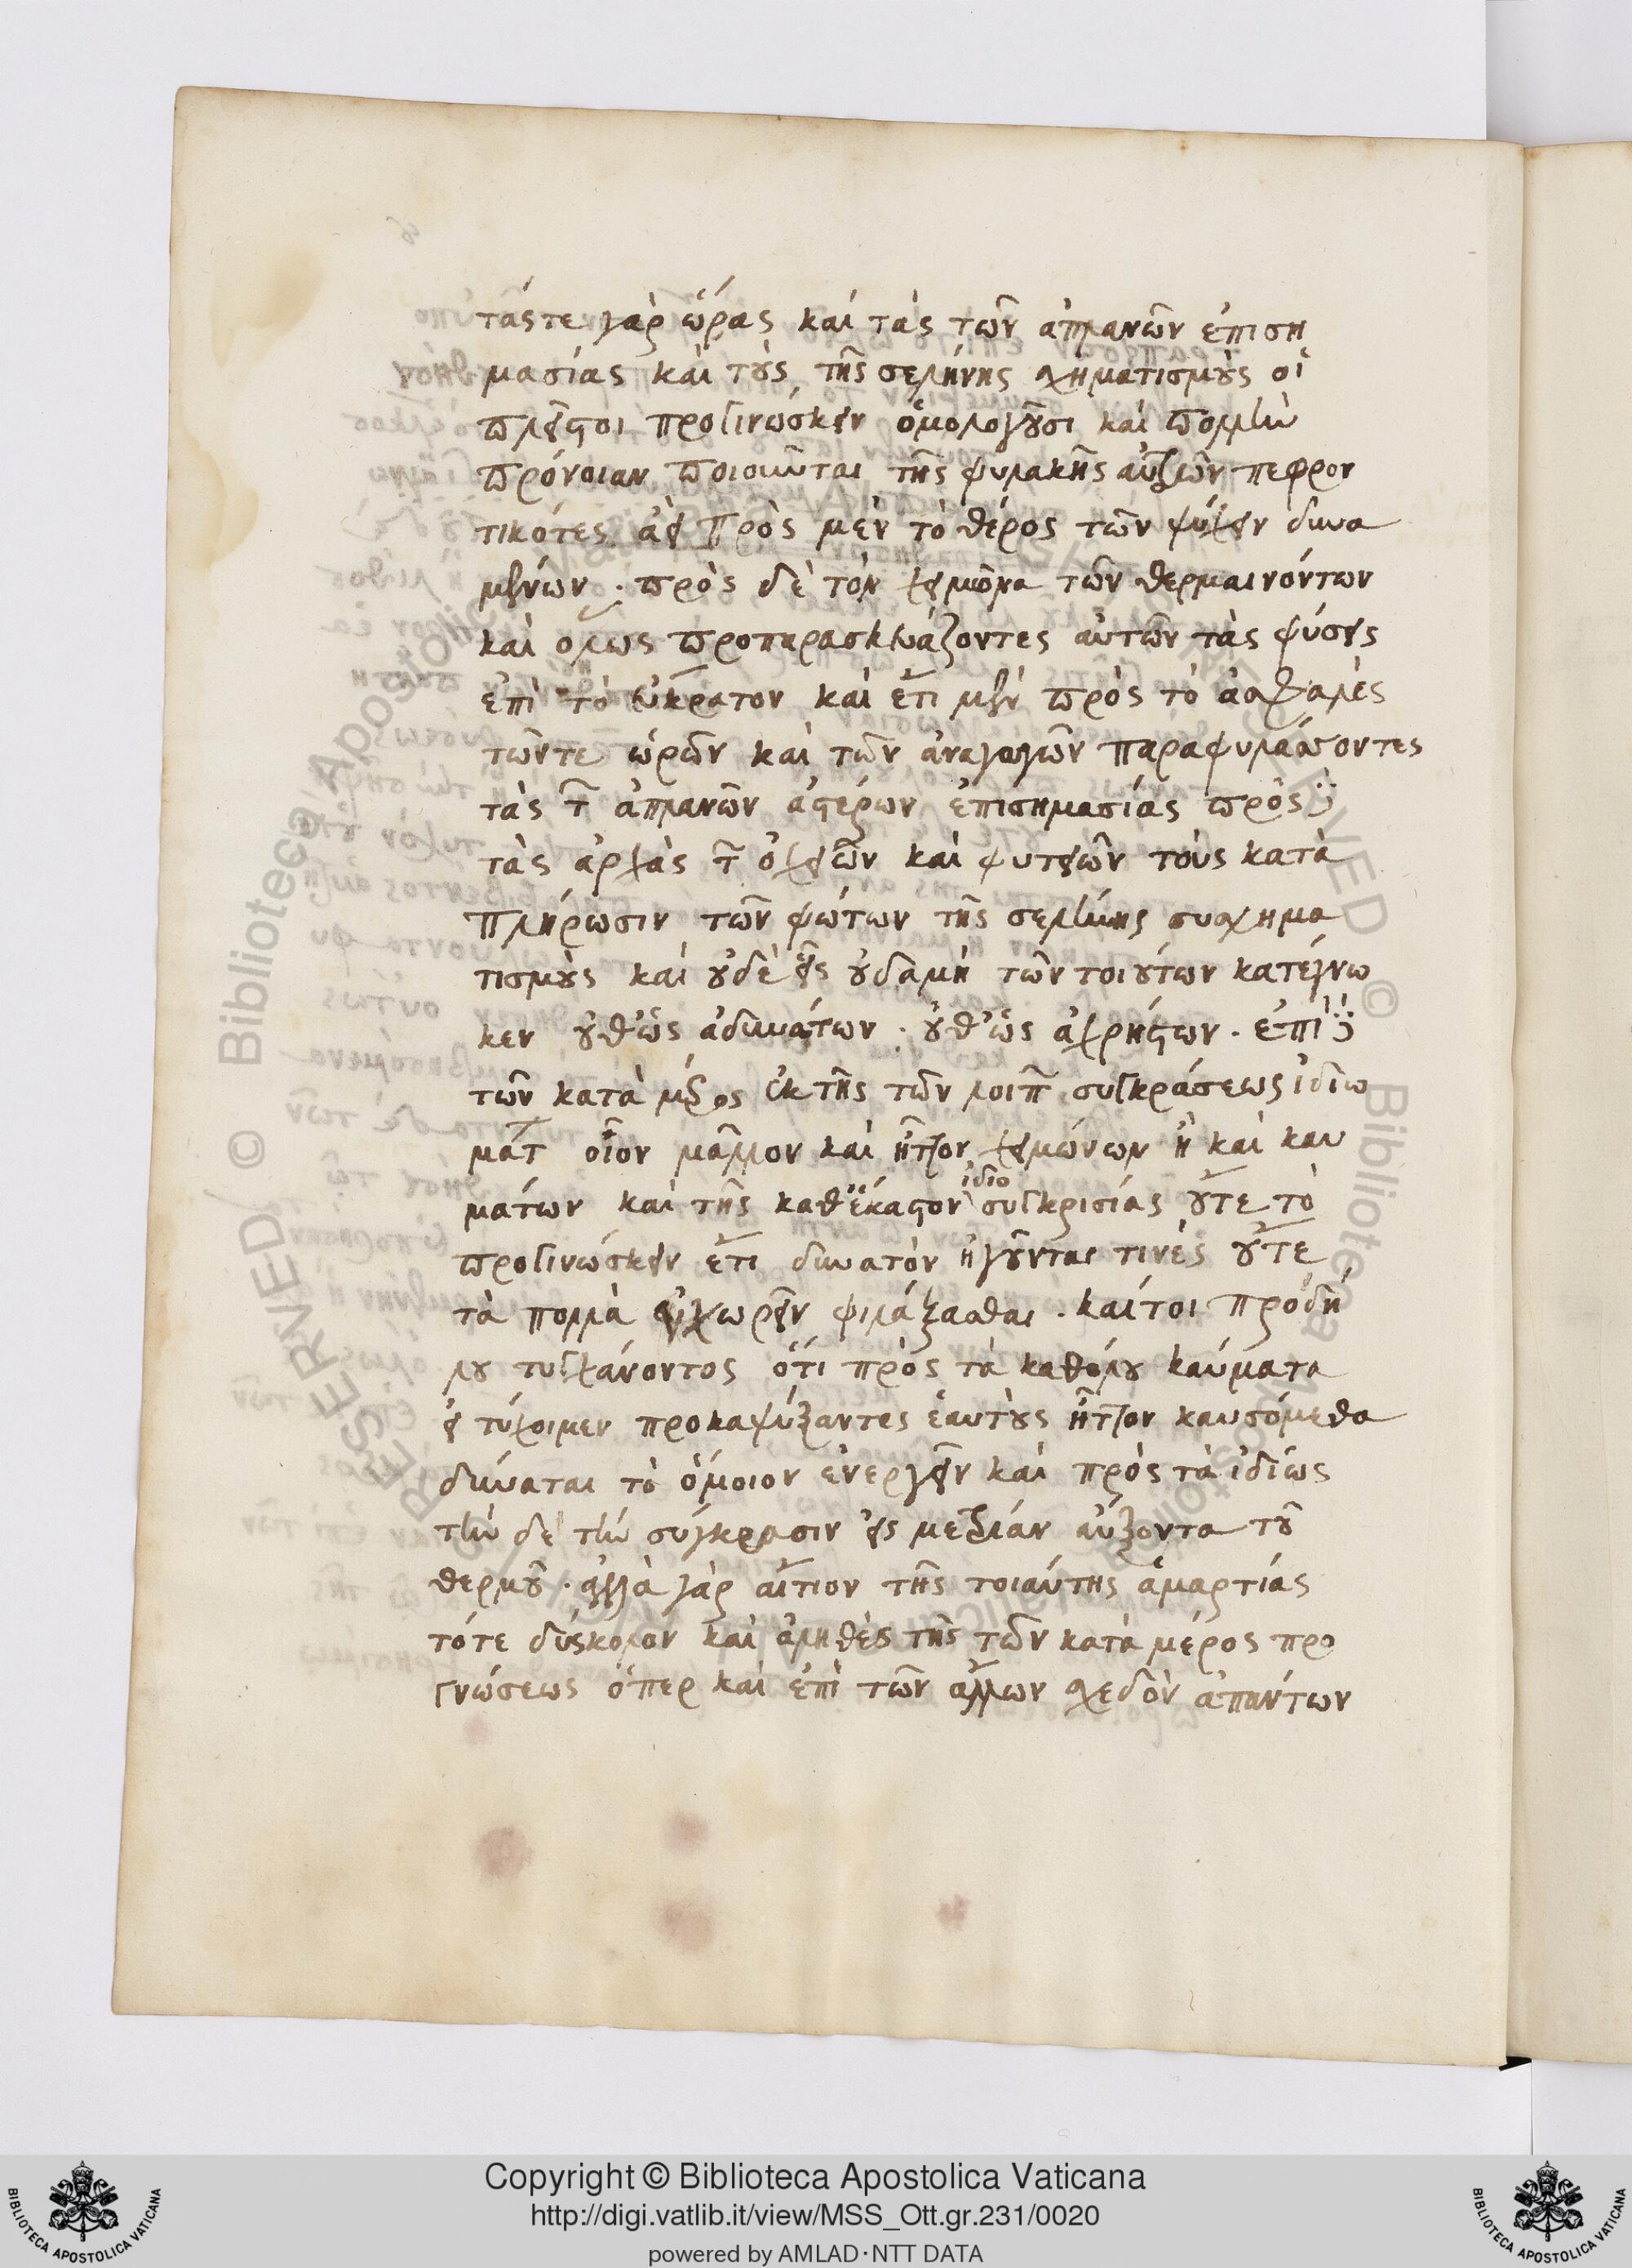 τάς τε γὰρ ὥρας καὶ τὰς τῶν ἀπλανῶν ἐπιση
μασίας καὶ τοὺς τῆς σελήνης σχηματισμοὺς οἱ
πλεῖστοι προγινώσκειν ὁμολογοῦσι καὶ πολλὴν
πρόνοιαν ποιοῦνται τῆς φυλακῆς αὐτῶν πεφρον
τικότες ἀεὶ πρὸς μὲν τὸ θέρος τῶν ψύχειν δυνα
μένων · πρὸς δὲ τὸν χειμῶνα τῶν θερμαινόντων
καὶ ὅλως προπαρασκευάζοντες αὐτῶν τὰς φύσεις
ἐπὶ τὸ εὔκρατον καὶ ἔτι μὲν πρὸς τὸ ἀσφαλὲς
τῶν τε ὡρῶν καὶ τῶν ἀναγωγῶν παραφυλάσσοντες
τὰς τ̃ ἀπλανῶν ἀστέρων ἐπισημασίας πρὸς
τὰς ἀρχὰς τ̃ ὀχειῶν καὶ φυτειῶν τοὺς κατὰ
πλήρωσιν τῶν φώτων τῆς σελήνης συσχημα
τισμοὺς καὶ οὐδὲ εἷς οὐδαμὴ τῶν τοιούτων κατέγνω
κεν οὔθ' ὡς ἀδυνάτων · οὔθ' ὡς ἀχρήστων · ἐπὶ
τῶν κατὰ μέρος ἐκ τῆς τῶν λοιπ̃ συγκράσεως ἰδιω
μάτ οἷον μᾶλλον καὶ ἧττον χειμώνων ἢ καὶ καυ
μάτων καὶ τῆς καθ' ἕκαστον ἰδιοσυγκρισίας οὔτε τὸ
προγινώσκειν ἔτι δυνατὸν ἡγοῦνται τινὲς οὔτε
τὰ πολλὰ ἐγχωρεῖν φιλάξασθαι · καίτοι προδή
λου τυγχάνοντος ὅτι πρὸς τὰ καθόλου καύματα
εἰ τύχοιμεν προκαψύξαντες ἑαυτοὺς ἧττον καυσόμεθα
δύναται τὸ ὅμοιον ἐνεργεῖν καὶ πρὸς τὰ ἰδίως
τὴν δὲ τὴν σύγκρασιν εἰς μετρίαν αὔξοντα τοῦ
θερμοῦ · ἀλλὰ γὰρ αἴτιον τῆς τοιαύτης ἁμαρτίας
τότε δύσκολον καὶ ἀληθὲς τῆς τῶν κατὰ μέρος προ
γνώσεως ὅπερ καὶ ἐπὶ τῶν ἄλλων σχεδὸν ἁπάντων
Copyright © Biblioteca Apostolica Vaticana
http://digi.vatlib.it/view/MSS_Ott.gr.231/0020
powered by AMLAD·NTT DATA
BIBLIOTECA APOSTOLICA VATICANA
BIBLIOTECA APOSTOLICA VATICANA